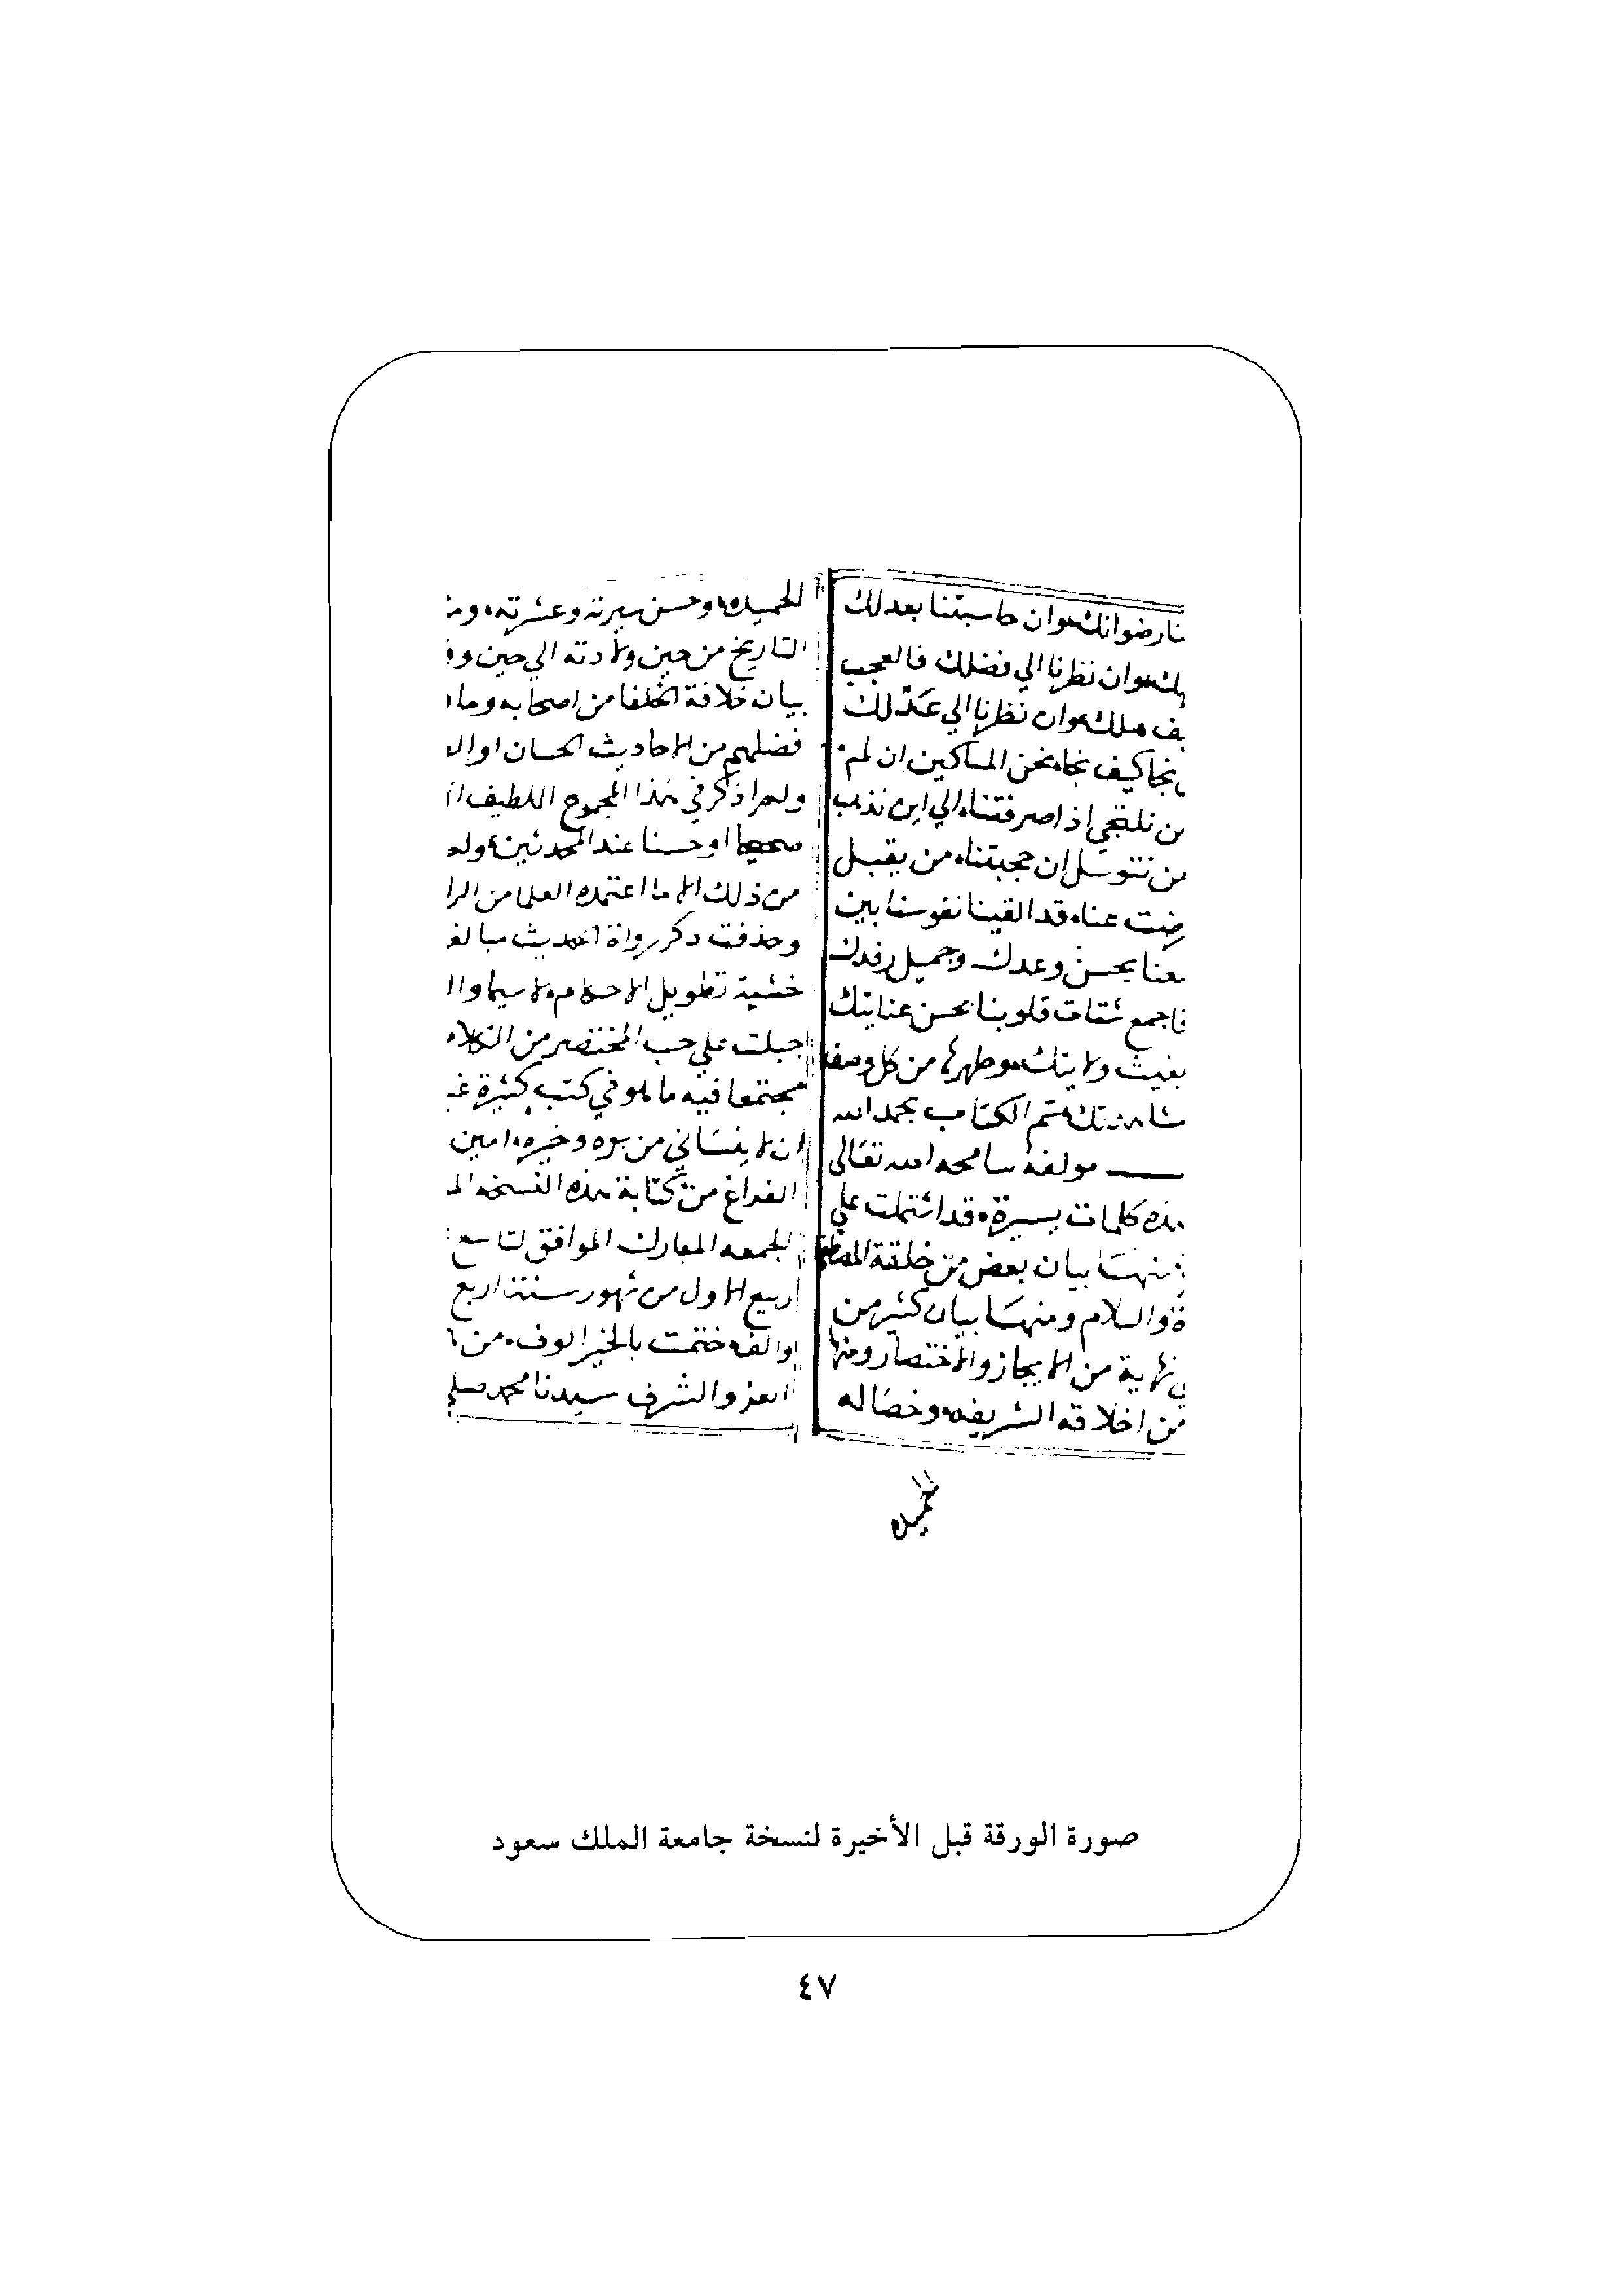 رضوانك وان حاسبتنا بعدلك
وان نظرنا الي فضلك فالعجب
وان نظرنا الي عدلك
كيف نجاه نحن المساكين ان لم
نلتجي اذ اصرفتناه الي اين نذهب
نتوسل ان حجبتناه من يقبل
عناه قد القينا نفوسنا بين
بحسن وعدك وجميل رفدك
فاجمع شتات قلوبنا بحسن عنايتك
وطهرها من كل وصف
تم الكتاب بحمد الله
مولفه سامحه الله تعالى
هذه كلمات يسيرة قد اشتملت علي
منها بيان بعض من خلقة المصطفى
والسلام ومنها بيان كثير من
نهاية من الايجاز والاختصار ومنها
من اخلاقه الشريفه وخصاله
الحميده
الحميده وحسن سيرته وعشرته
التاريخ من حين ولادته الي حين
بيان خلافة الخلفا من اصحابه وما
فضلهم من الاحاديث الحسان او
ولم اذكر في هذا المجموع اللطيف
صحيحا او حسنا عند المحدثين
من ذلك الا ما اعتمده العلما من
وحذفت ذكر رواة الحديث
خشية تطويل الاحكام لا سيما
جبلت علي حب المختصر من الكلام
مجتمعا فيه ما هو في كتب كثيرة
ان لا ينساني من بره وخيره امين
الفراغ من كتابة هذه النسخه
الجمعه المبارك الموافق لتاسع
ربيع الاول من شهور سنة اربع
والف ختمت بالخير الوف من
العز والشرف سيدنا محمد صلي
صورة الورقة قبل الأخيرة لنسخة جامعة الملك سعود
٤٧